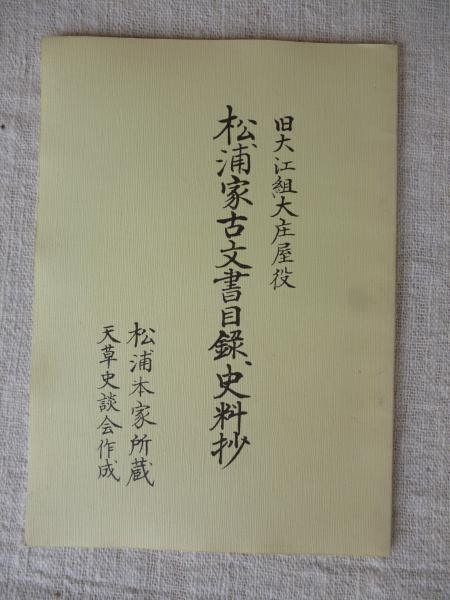 旧大江組大庄屋役
松浦家古文書目録、史料抄
松浦本家所蔵
天草史談会作成